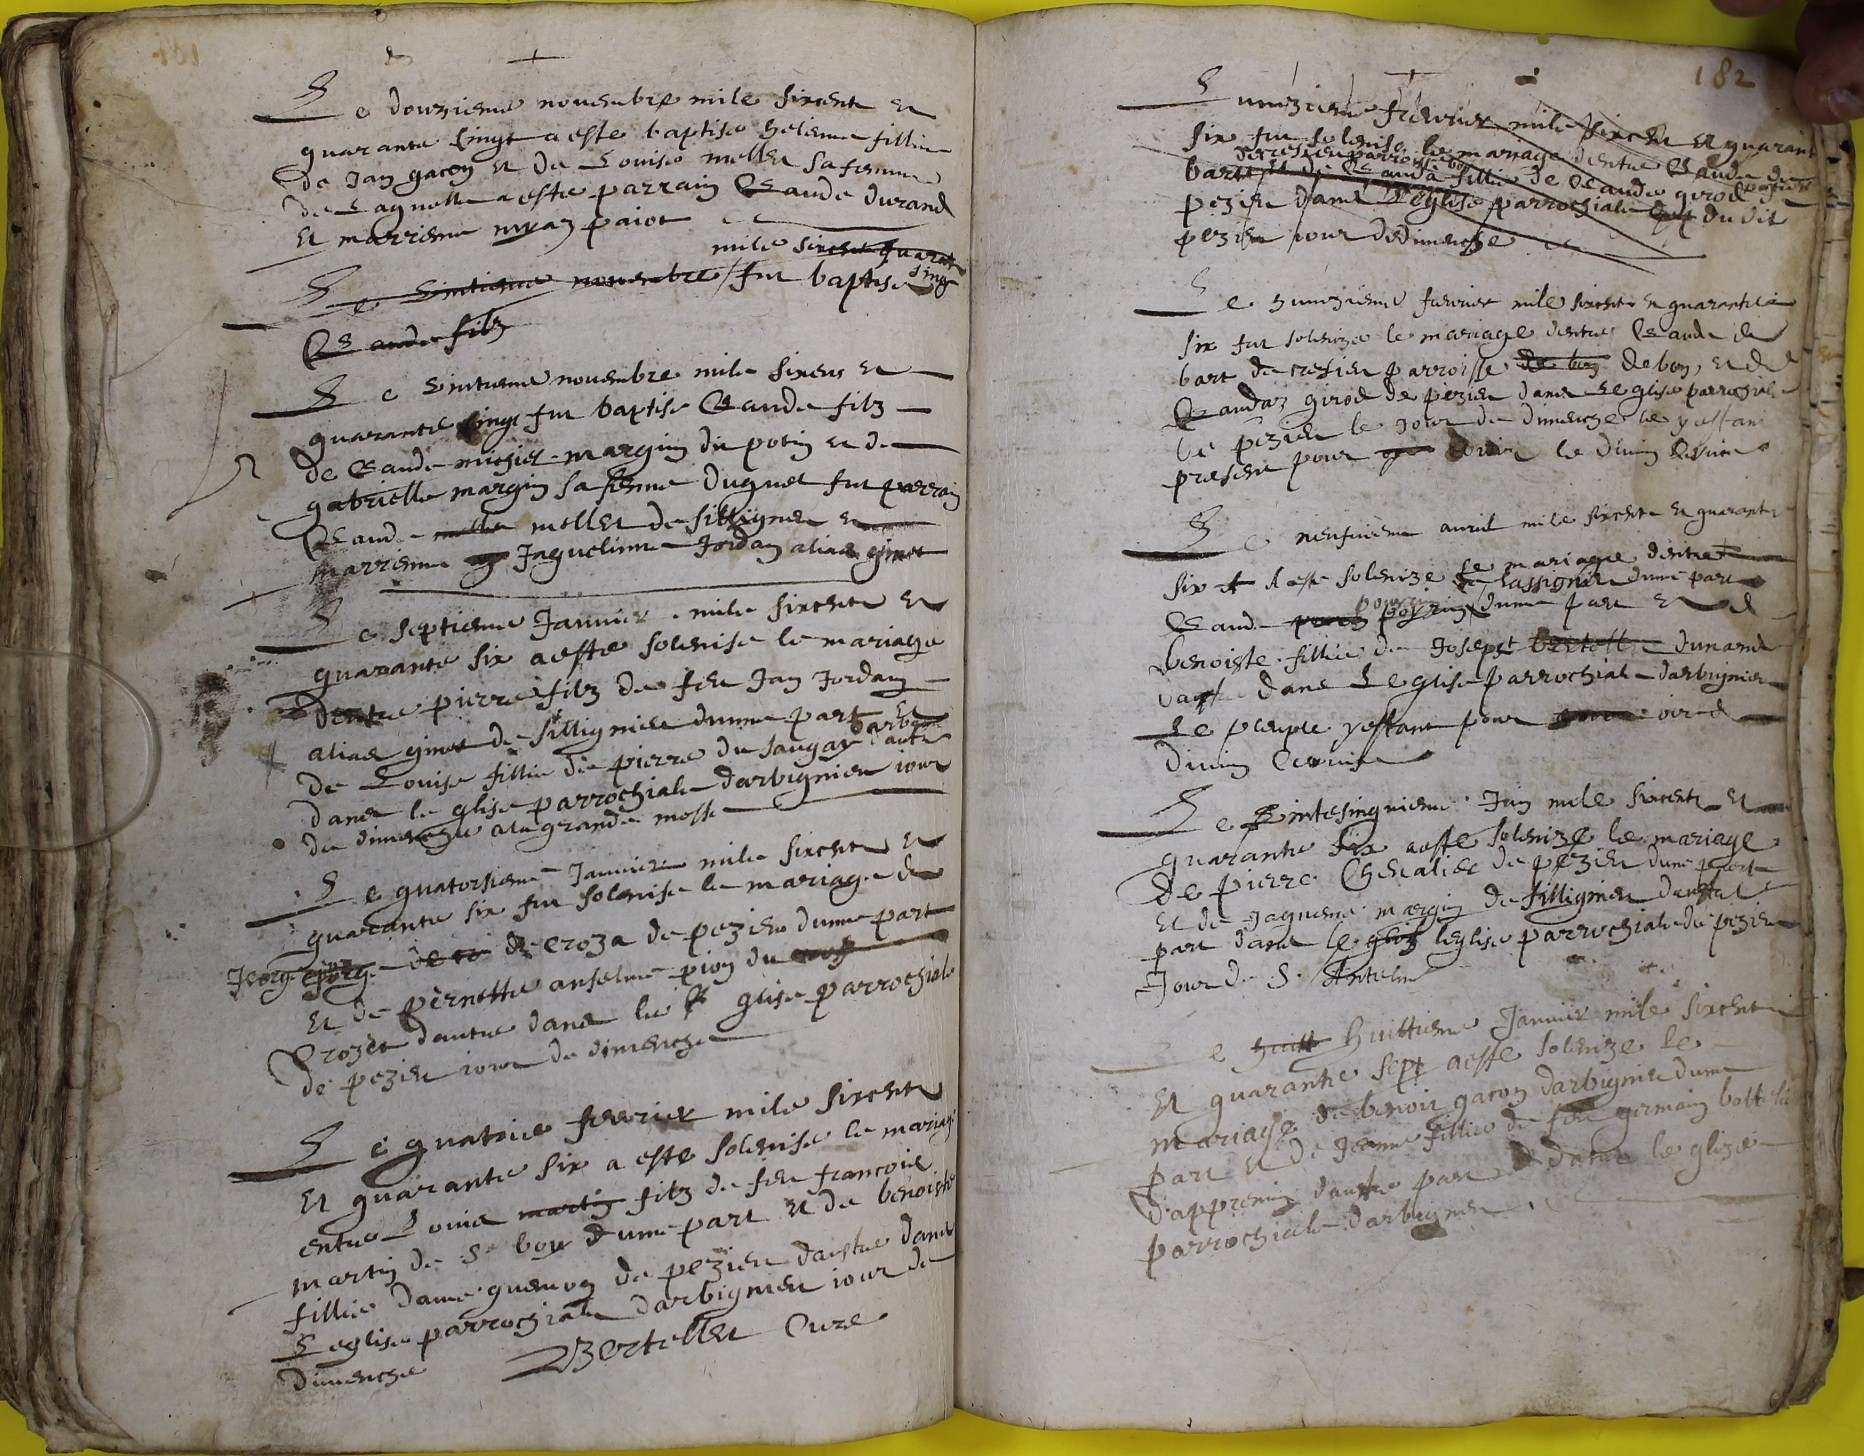 Le douzieme novembre mile sixcent et
quarante singt a este baptise helienne fillie
de Jan gacon et de Louise mollet sa femme
de Lagnette a este parrain Claude durand
Et marrienne paiot
mile sixcent quarante
singt
Le vintieme novembre fut baptise
Claude filz
Le vintieme novembre mile sixens et
quarante singt fut baptise Claude filz
de Claude michiel margin dit potin et de
gabrielle margin sa femme duquel fut parrain
Claude mollet de sillignieu et
marrienne Jaquelinne Jordan alias ginet
Le septieme Januier mile sixcent et
quarante six a este solenise le mariage
dentre pierre filz de feu Jan Jordan
alias ginet de sillignieu dunne part et
de Louise fillie de pierre du saugay dautre
dans leglise parrochiale darbignieu iour
de dimenche a la grande messe
Le quatorsieme Januier mile sixcent et
quarante six fut solenise le mariage de
Jeorge de croza de pezieu dunne part
Et de pernette anselme pion du
Crozet dautre dans le glise parrochiale
de pezieu iour de dimenche
Le quatrie feurier mile sixcent
Et quarante six a este solenise le mariage
entre Louis martin filz de feu francois
martin de St bon dune part et de benoiste
fillie dame guenon de pezieu daultre dans
Leglise parrochiale darbignieu iour de
Dimenche Bertellet Cure
182
unzieme feurier mile sixcent et quarante
six fut solenise le mariage dentre Claude de
bart fillie de Claude girod
pezieu dans leglise parrochiale dudit
pezieu iour de dimenche
Le unzieme feurier mile sixcent et quarante
six fut solenize le mariage dentre Claude de
bart de cresieu parroisse de bon de bon, et de
Claudaz girod de pezieu dans leglise parrochiale
de pezieu le Jour de dimenche le y estant
present pour ouir le diuin seruice
Le neufuieme auril mile sixcent et quarante
six a este solenize le mariage dentre
de lassignieu dune part
Claude dune part et de
benoiste fillie de Joseph bertellet dunand
dautre dans Leglise parrochiale darbignieu
Le peuple y estant pour ouir
diuin seruice
Le vintesinquieme Juin mile sixcent et
quarante six a este solenize le mariage
de pierre Cheualier de pezieu dune part
Et de Jaquema margin de sillignieu daultre
part dans leglise parrochiale de pezieu
Jour de S. Antelme
Le huitt huittieme Januier mile sixcent
Et quarante sept a este solenize le
mariage de benoit gacon darbignieu dune
part et de Jeanne fillie de feu germain
dappremin daultre part dans le glize
parrochiale darbignieu